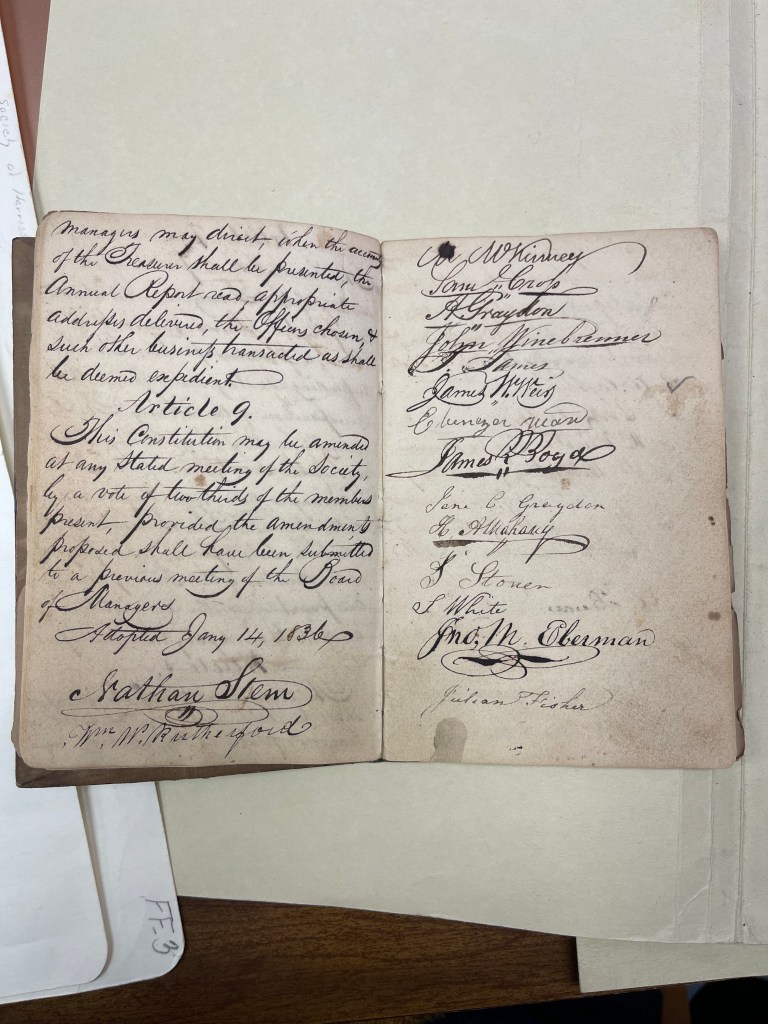 managers may direct, when the account
of the Treasurer shall be presented, the
Annual Report read, appropriate
addresses delivered, the Officers chosen, &
such other business transacted as shall
be deemed expedient.
Article 9.
This Constitution may be amended
at any Stated meeting of the Society,
by a vote of two thirds of the members
present, provided the amendments
proposed shall have been submitted
to a previous meeting of the Board
of Managers
Adopted Jany 14, 1836
Nathan Stem
Wm. W. Rutherford
M McKinney
Saml Cross
A Graydon
John Winebrenner
James
James W. Weir
Ebenezer
James R Boyd
Jane C. Graydon
H. A Mahany
S Stoner
S White
Jno. M. Eberman
Julian Fisher
Society of
FF-3